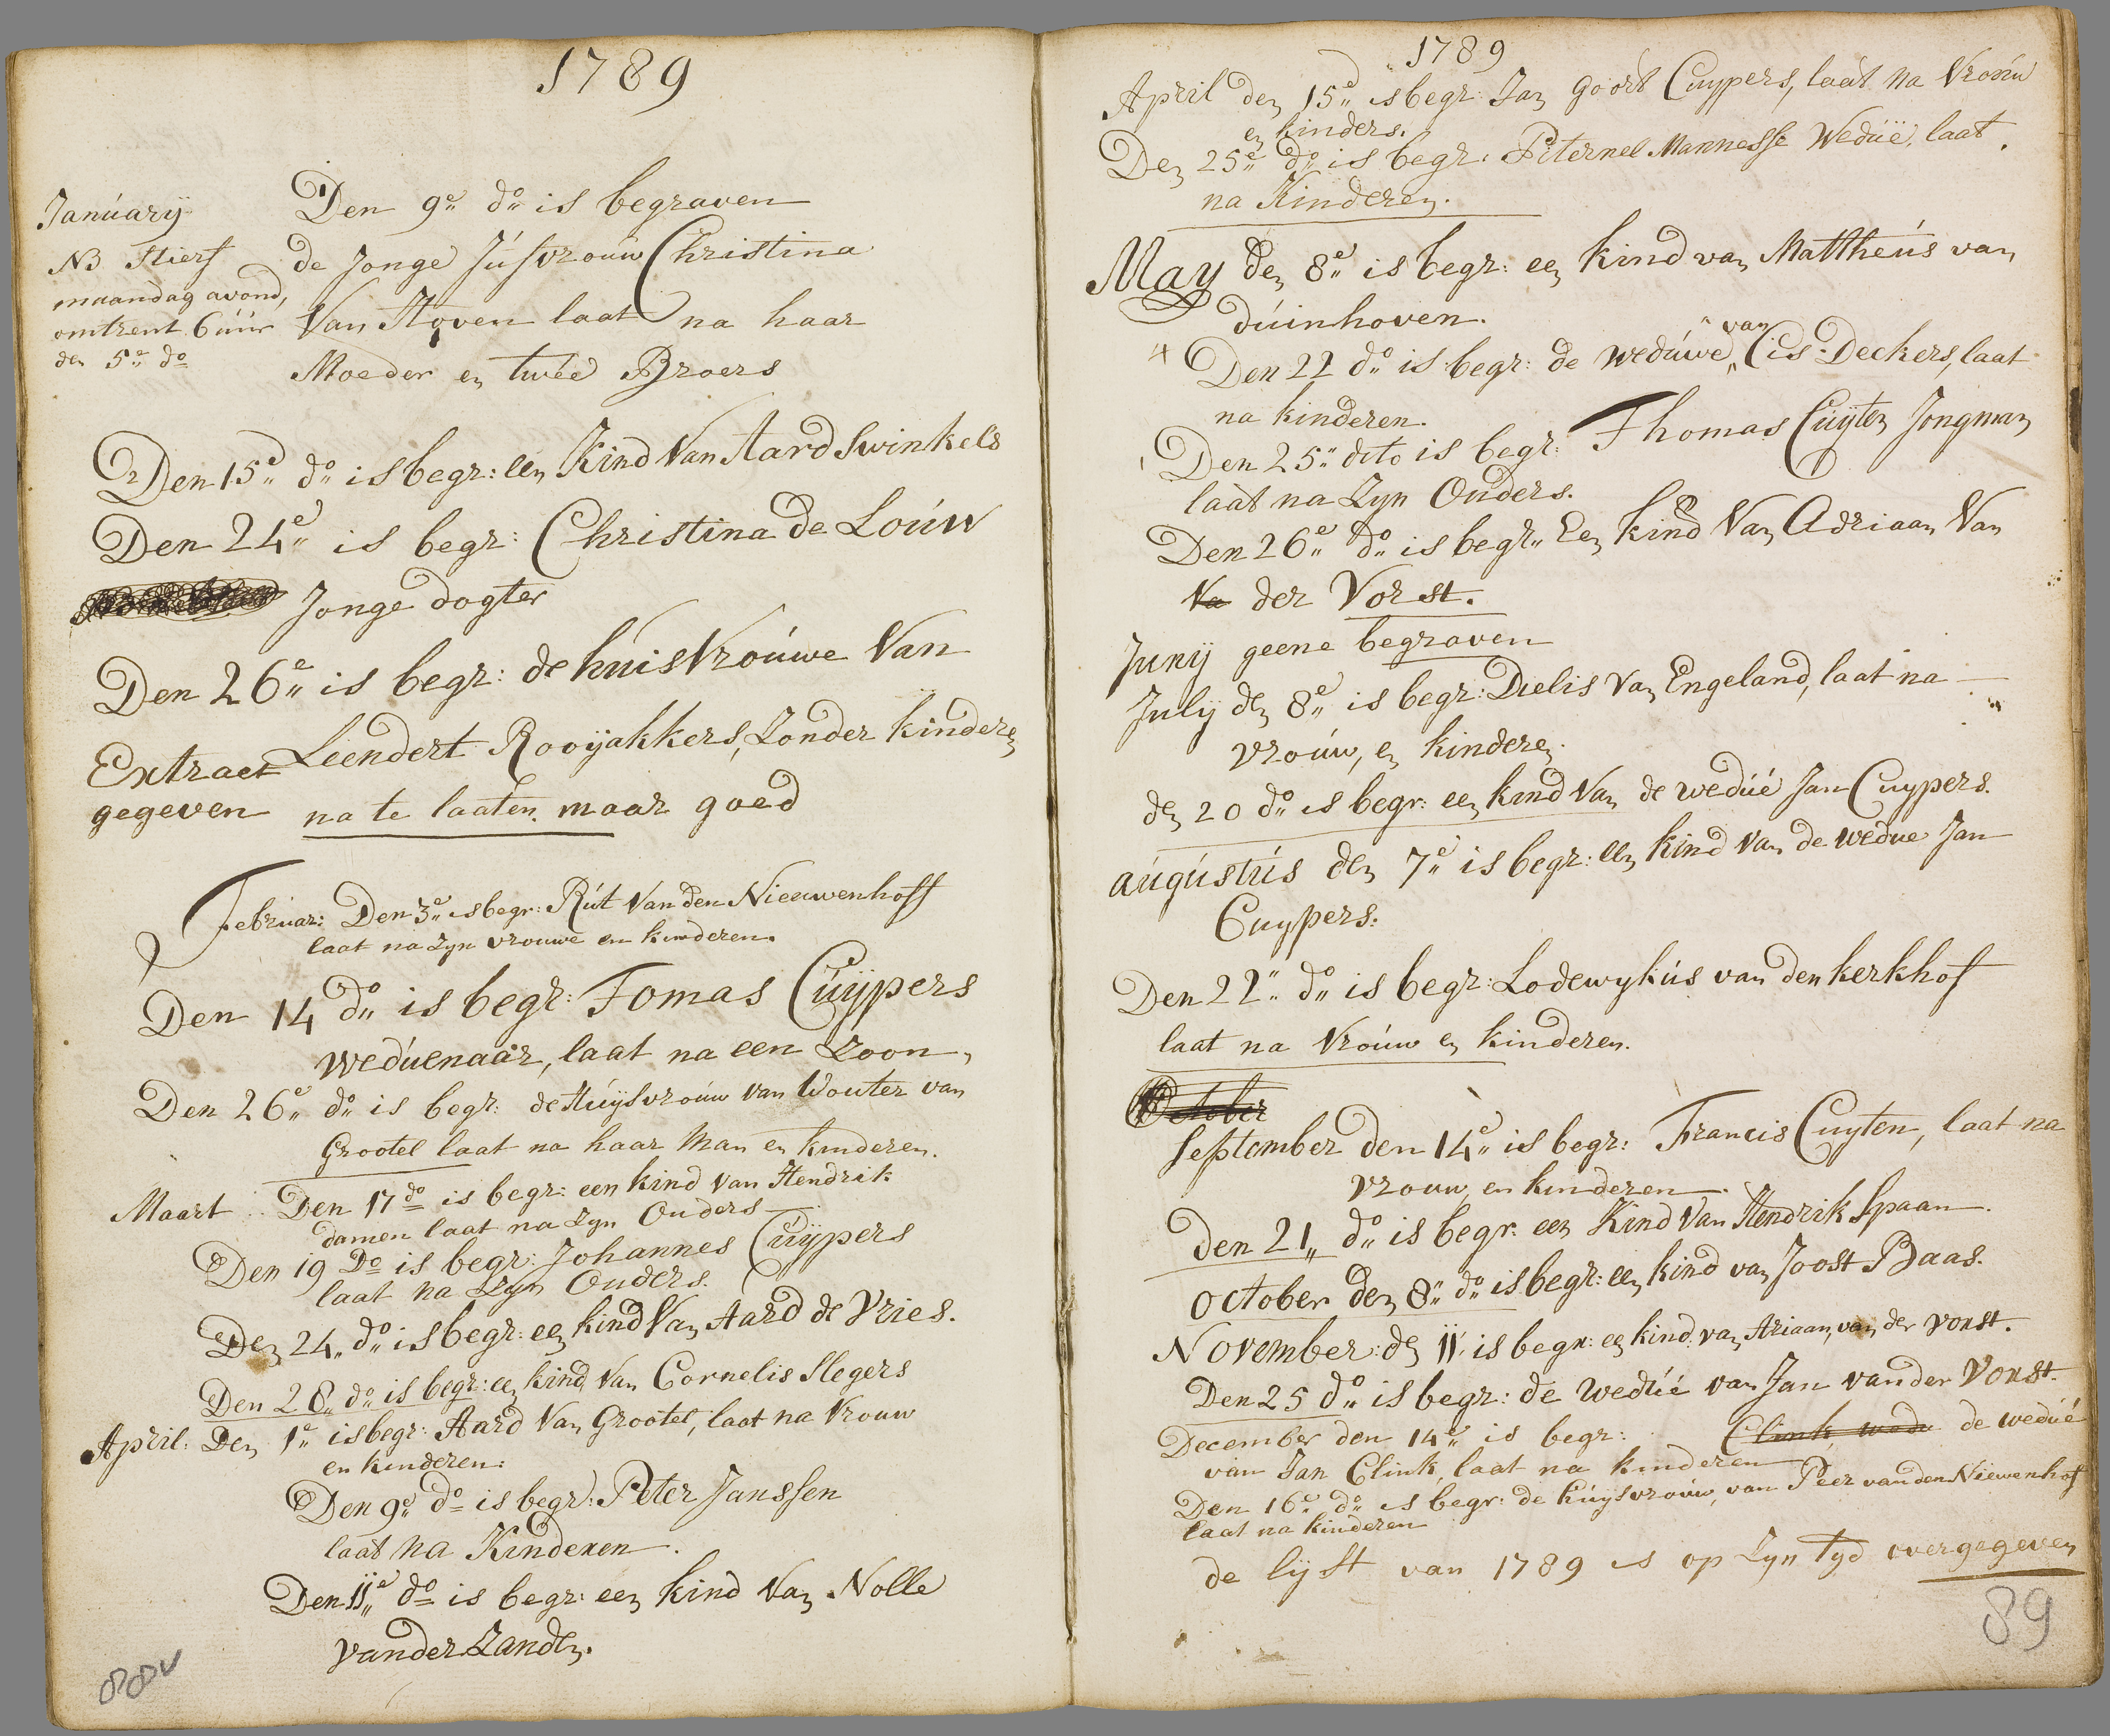 1789
January
NB Stierf
maandag avond,
omtrent 6 úúr
den 5e do
Den 9e do is begraven
de Jonge Júfvrouw Christina
Van Hoven laat na haar
Moeder en twee Broers
Den 15e do is begr: een Kind Van Aard Swinkels
Den 24e is begr: Christina de Loúw
Jonge dogter
Den 26e is begr: de huisvroúwe Van
Leendert Rooijakkers, Zonder kinderen
Extract
gegeven
na te laaten. maar goed
Februar: Den 3e is begr: Rút Van den Nieuwenhoff
laat na Zyn vrouwe en kinderen.
Den 14 do is begr: Tomas Cúijpers
Wedúenaar, laat na een Zoon,
Den 26e do is begr: de Húijsvroúw van Wouter van
Grootel laat na haar Man en kinderen.
Maart Den 17do is begr: een kind van Hendrik
damen laat na Zyn Ouders
Den 19 Do is begr: Johannes Cúijpers
laat na Zyn Ouders.
Den 24 do is begr: een kind Van Aard de Vries.
Den 28 do is begr: een kind Van Cornelis Slegers
April: Den 1e is begr: Aard Van Grootel, laat na Vrouw
en kinderen:
Den 9e do is begr: Peter Janssen
laat na Kinderen.
Den 11e do is begr: een kind Van Nolle
vander Zanden.
88v
1789
April den 15e is begr: Jan Goort Cuypers, laat na Vroúw
en kinders.
Den 25e do is begr: Peternel Mannesse Wedúë, laat
na Kinderen.
May den 8e is begr: een kind van Mattheús van
dúinhoven.
Den 22 do is begr: de wedúwe van Cis Deckers, laat
na kinderen.
Den 25 dito is begr: Thomas Cúijten Jongman
laat na Zyn Ouders.
Den 26e do is begr: Een kind Van Adriaan Van
Va der Vorst.
Junij geene begraven
Julij den 8e is begr: Dielis van Engeland, laat na
vroúw, en kinderen.
den 20 do is begr: een kind Van de wedúé Jan Cuypers.
aúgústús den 7e is begr: een kind Van de wedue Jan
Cuypers.
Den 22 do is begr: Lodewykús van den kerkhof
laat na Vroúw en kinderen.
October
September den 14e is begr: Francis Cuyten, laat na
vrouw en kinderen.
Den 21 do is begr: een Kind Van Hendrik Spaan.
October den 8 do is begr: een kind van Joost Baas.
November: den 11 is begr: een kind van Ariaan, van der vorst.
Den 25 do is begr: de Wedúé van Jan van der Vorst.
December den 14e is begr: Clink, wede de wedúé
van Jan Clink, laat na kinderen
Den 16e do is begr: de húijsvroúw, van Peer van den Niewenhof
laat na kinderen
de lijst van 1789 is op Zyn Tyd overgegeven
89